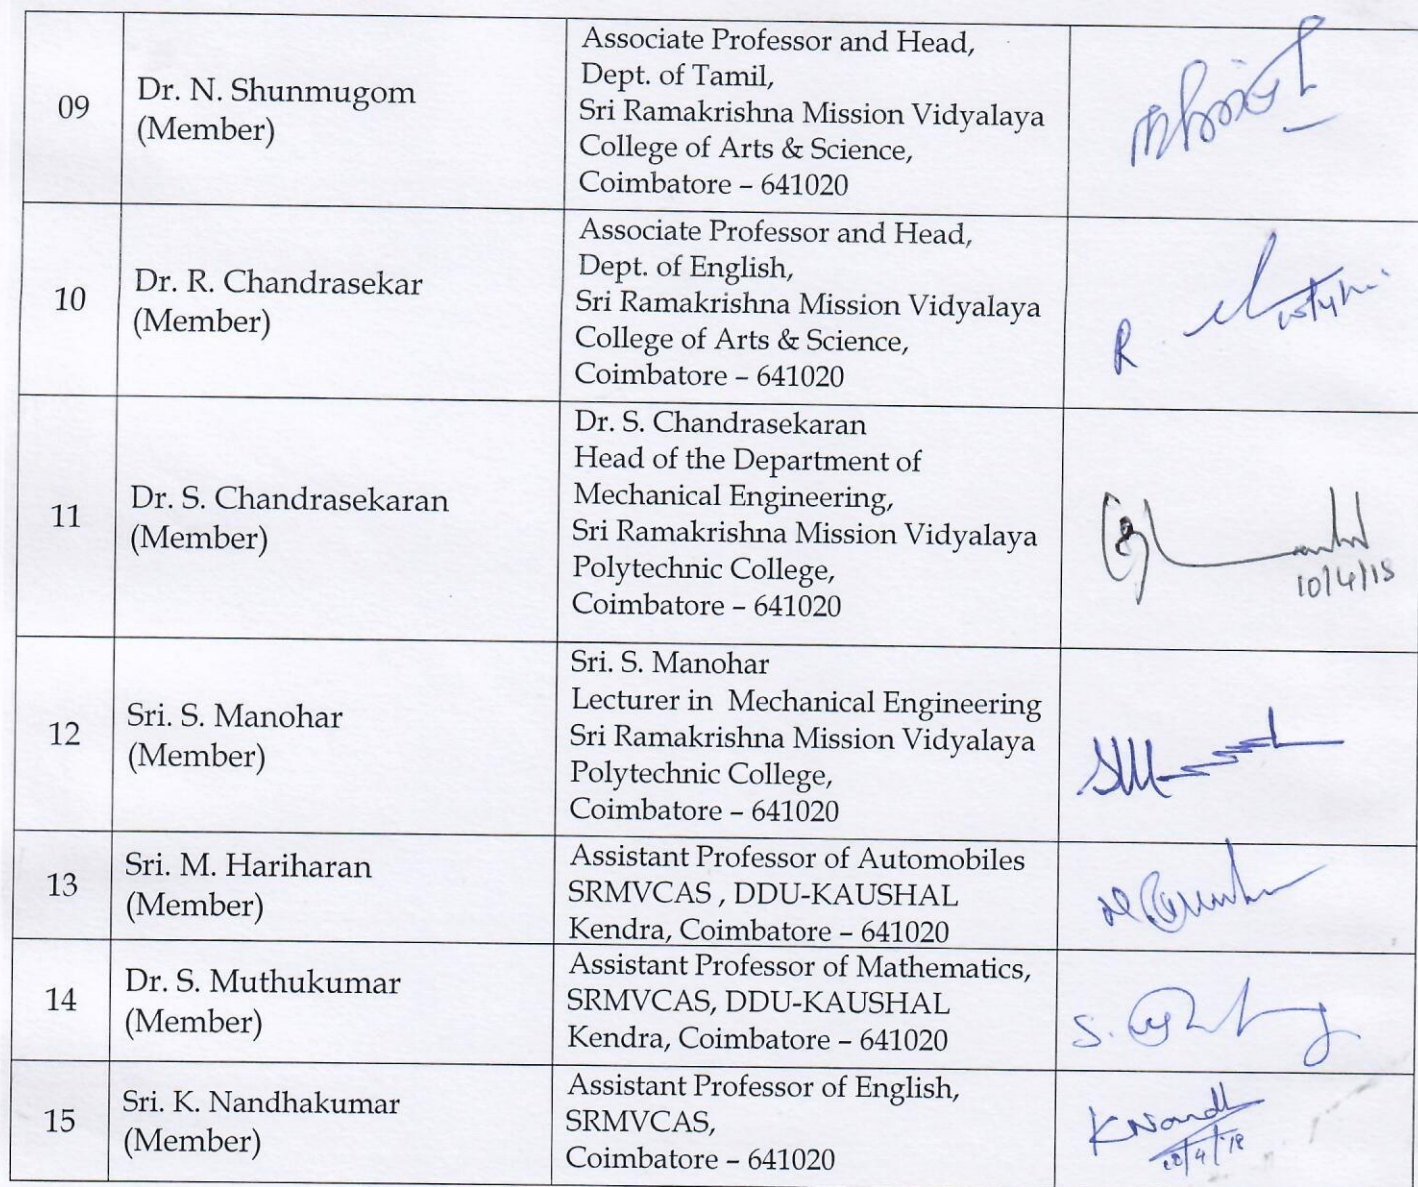 09
Dr. N. Shunmugom
(Member)
Associate Professor and Head,
Dept. of Tamil,
Sri Ramakrishna Mission Vidyalaya
College of Arts & Science,
Coimbatore – 641020
10
Dr. R. Chandrasekar
(Member)
Associate Professor and Head,
Dept. of English,
Sri Ramakrishna Mission Vidyalaya
College of Arts & Science,
Coimbatore – 641020
R
11
Dr. S. Chandrasekaran
(Member)
Dr. S. Chandrasekaran
Head of the Department of
Mechanical Engineering,
Sri Ramakrishna Mission Vidyalaya
Polytechnic College,
Coimbatore – 641020
10/4/18
12
Sri. S. Manohar
(Member)
Sri. S. Manohar
Lecturer in Mechanical Engineering
Sri Ramakrishna Mission Vidyalaya
Polytechnic College,
Coimbatore – 641020
13
Sri. M. Hariharan
(Member)
Assistant Professor of Automobiles
SRMVCAS , DDU-KAUSHAL
Kendra, Coimbatore – 641020
14
Dr. S. Muthukumar
(Member)
Assistant Professor of Mathematics,
SRMVCAS, DDU-KAUSHAL
Kendra, Coimbatore – 641020
S.
15
Sri. K. Nandhakumar
(Member)
Assistant Professor of English,
SRMVCAS,
Coimbatore – 641020
K Nandh